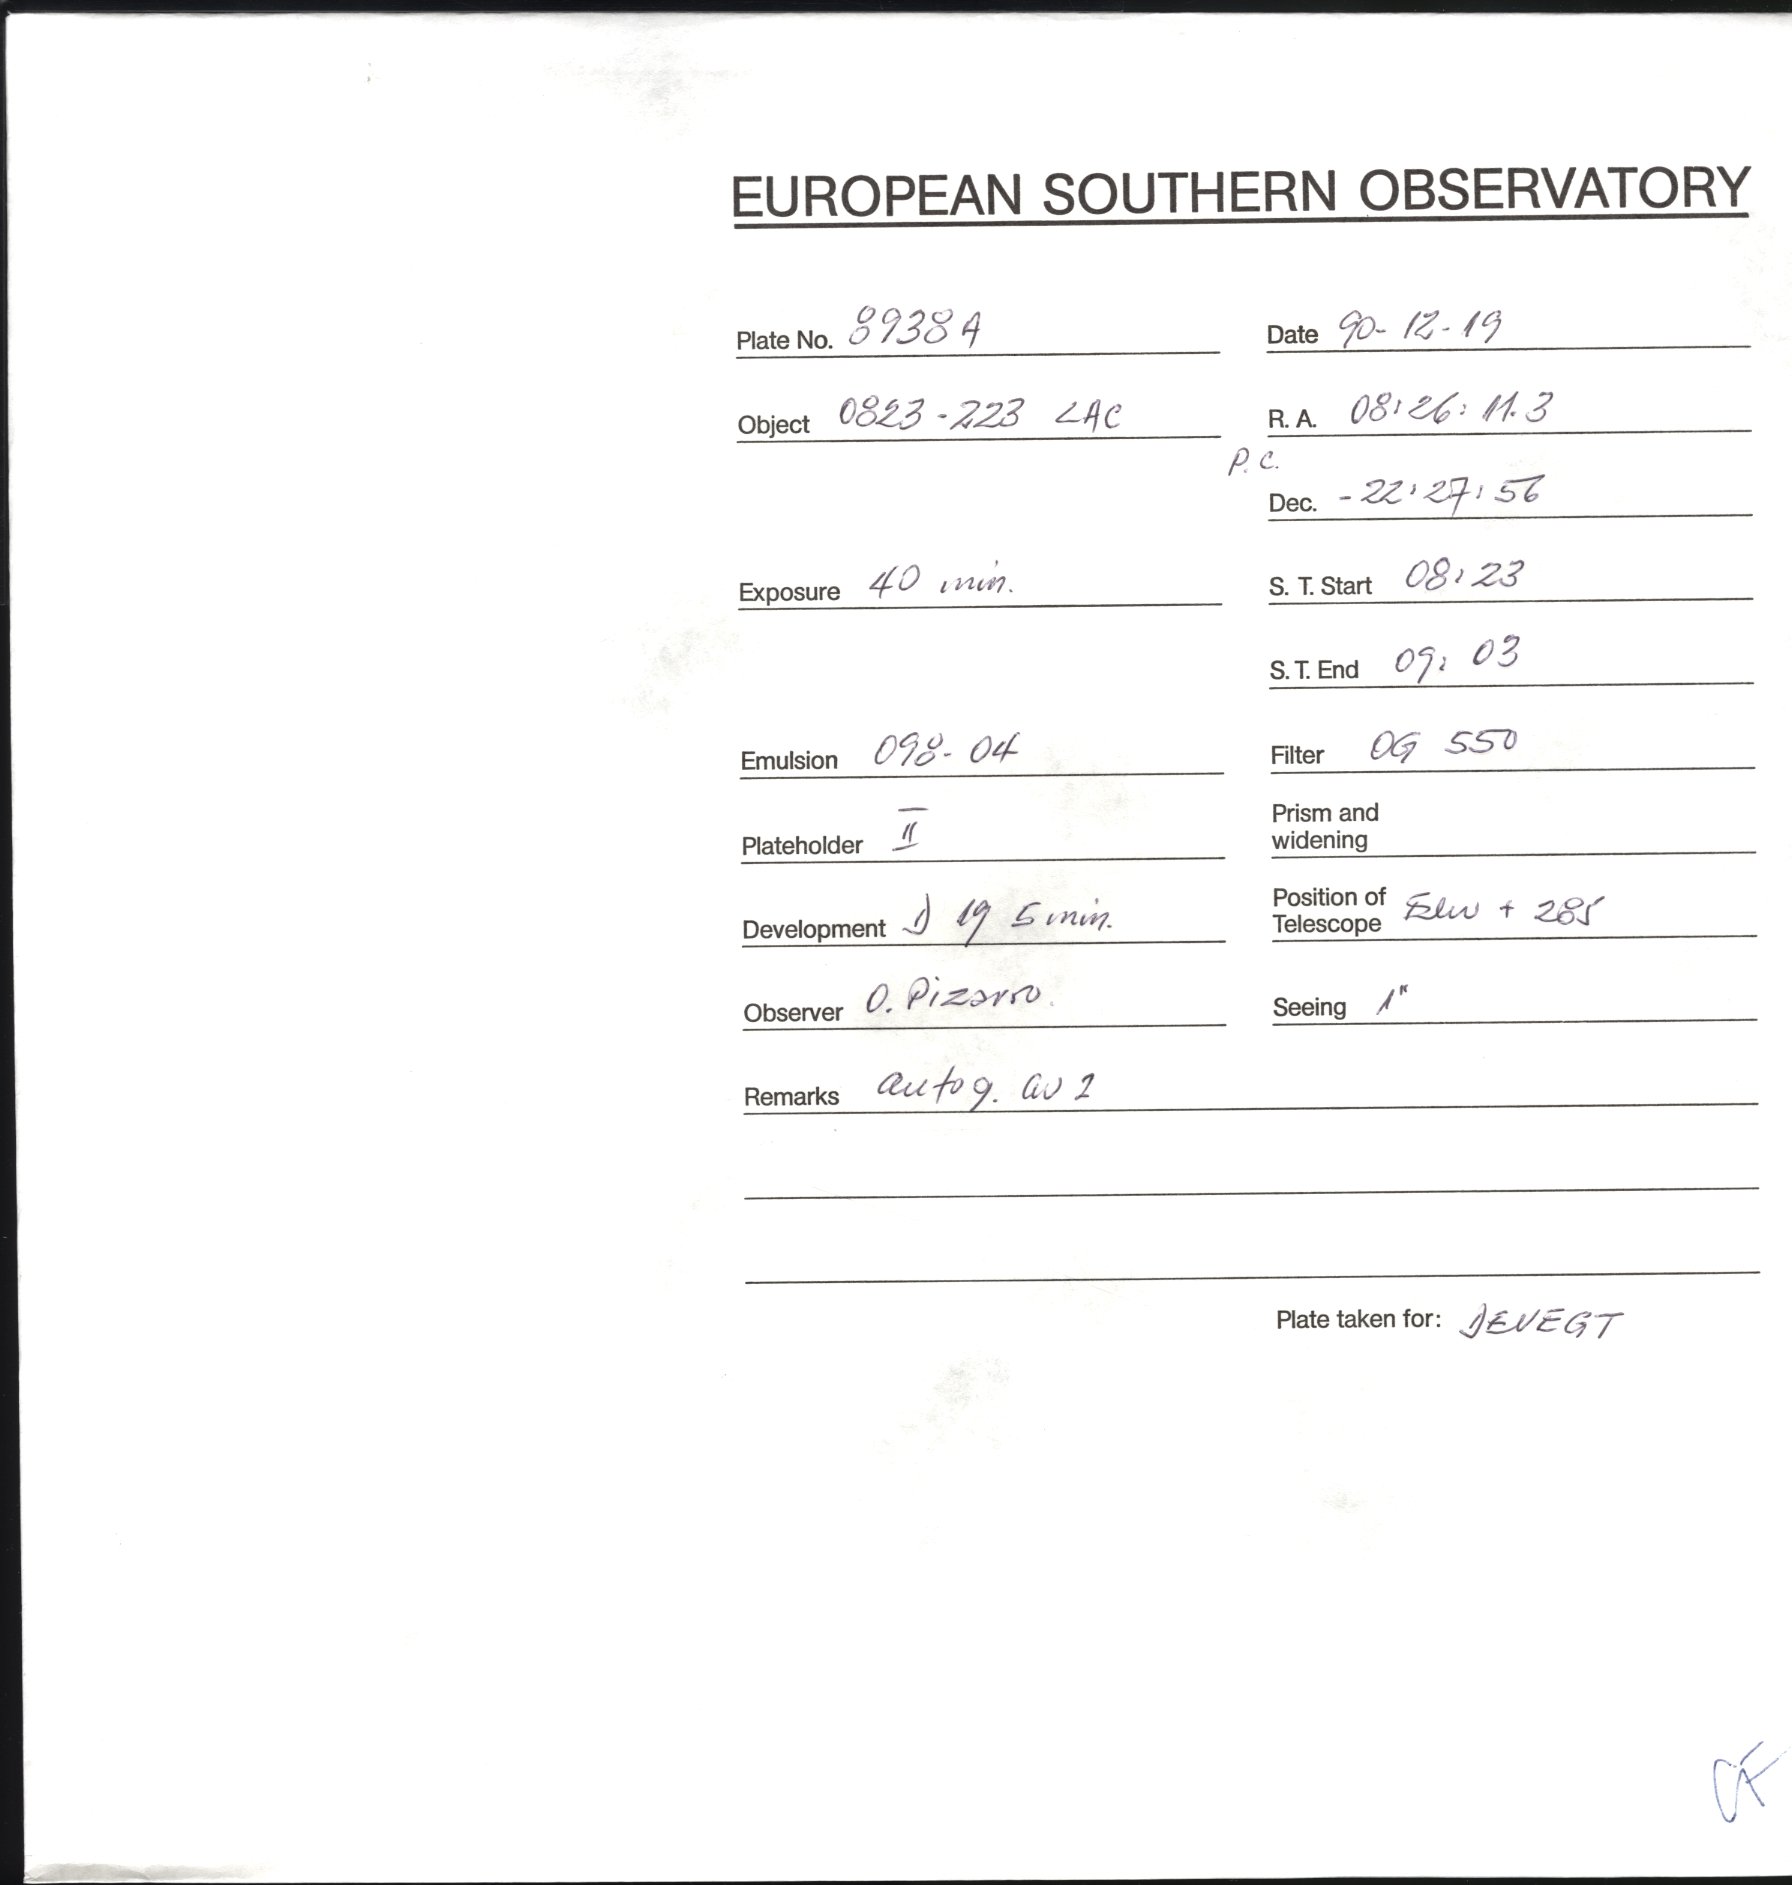 EUROPEAN SOUTHERN OBSERVATORY
Plate No. 8938A Date 90-12-19
Object 0823-223 LAC R. A. 08:26:11.3
P. C.
Dec. -22:27:56
Exposure 40 min. S. T. Start 08:23
S. T. End 09:03
Emulsion 098-04 Filter OG 550
Plateholder II Prism and
widening
Development D 19 5 min. Position of
Telescope + 285
Observer O. Pizarro. Seeing 1"
Remarks autog. 
Plate taken for: DEVEGT